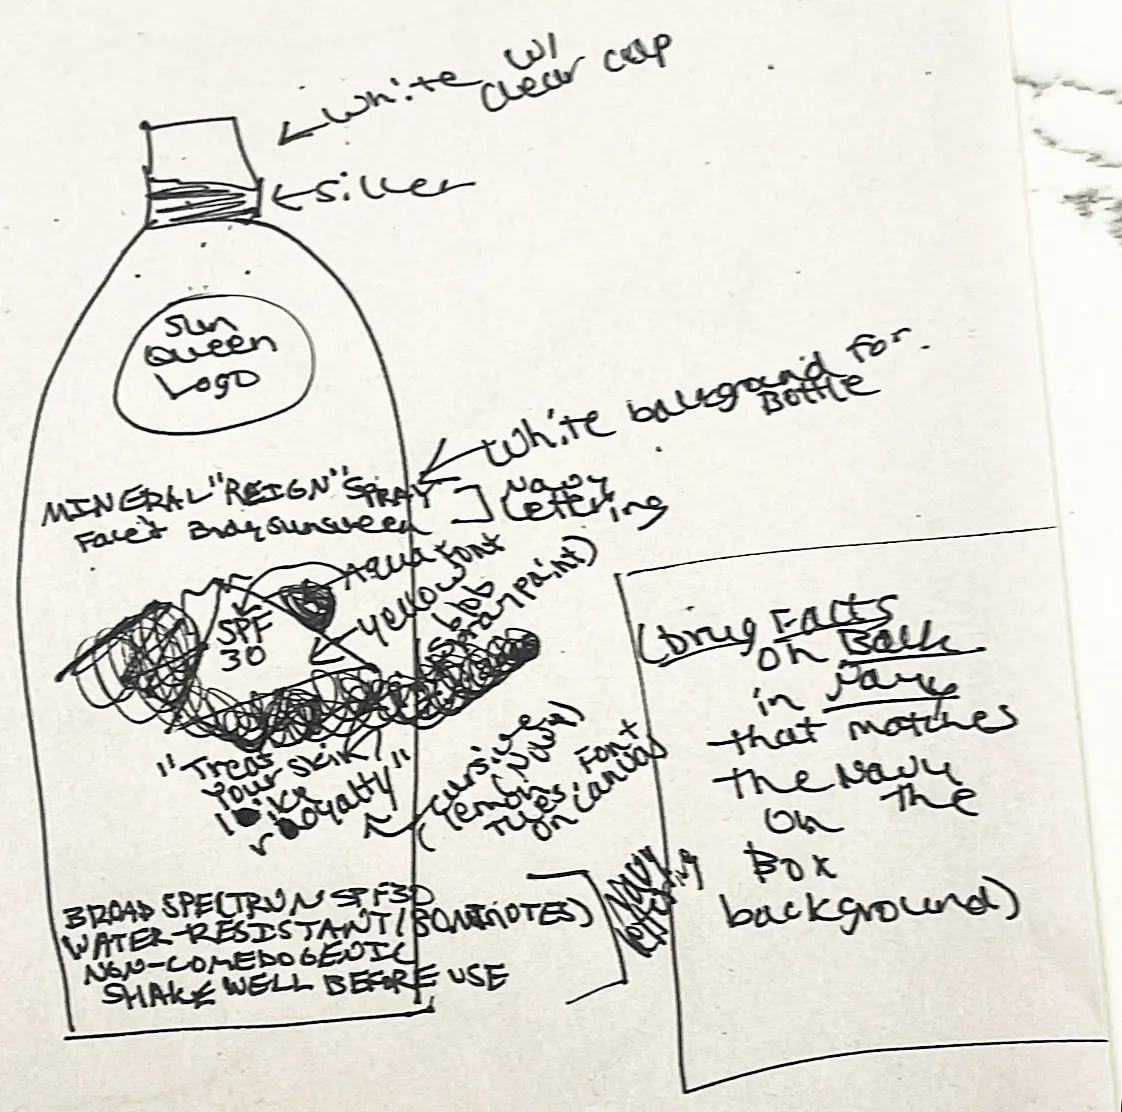 White w/
clear cap
silver
Sun
Queen
Logo
White background for
Bottle
MINERAL "REIGN" SPRAY
Face & Body sunscreen
Navy
Lettering
Aqua font
yellow
blob
(spray paint)
SPF
30
"Treat
your skin
like
royalty"
cursive
(Navy)
(Lemon
Tuesday Font
on Canva)
BROAD SPECTRUM SPF 30
WATER-RESISTANT (80 MINUTES)
NON-COMEDOGENIC
SHAKE WELL BEFORE USE
Navy
lettering
(Drug Facts
on Back
in Navy
that matches
the Navy
on the
Box
background)